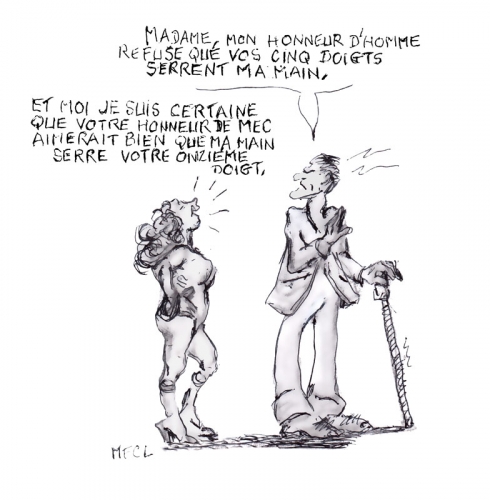 MADAME, MON HONNEUR D'HOMME
REFUSE QUE VOS CINQ DOIGTS
SERRENT MA MAIN,
ET MOI JE SUIS CERTAINE
QUE VOTRE HONNEUR DE MEC
AIMERAIT BIEN QUE MA MAIN
SERRE VOTRE ONZIEME
DOIGT,
MFCL